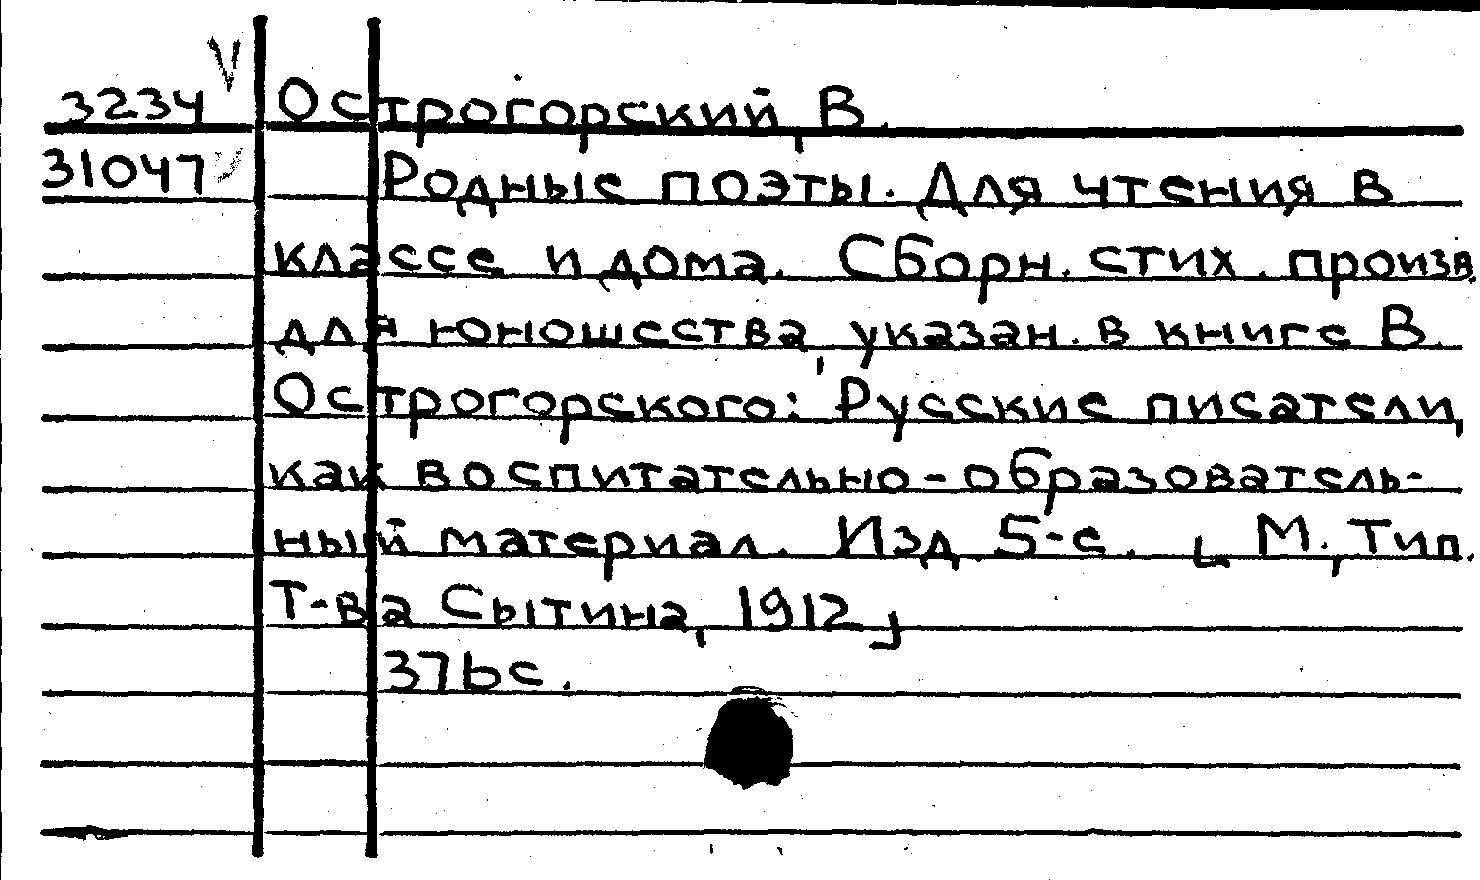 3234 Острогорский, В.
31047 Родные поэты. Для чтения в
классе и дома. Сборн. стих. произв.
для юношества, указан. в книге В.
Острогорского: Русские писатели,
как воспитательно-образователь-
ный материал. Изд. 5-е. [М., Тип.
Т-ва Сытина, 1912]
376с.